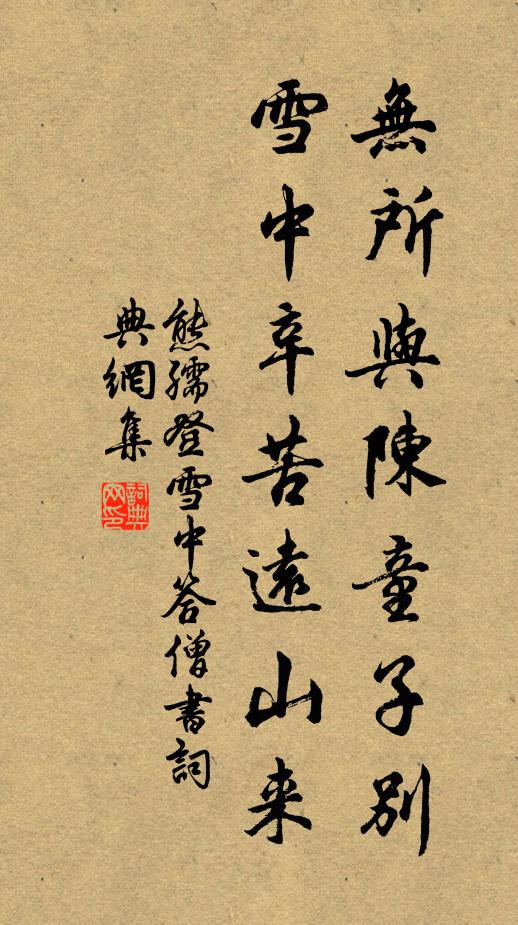 無所與陳童子別
雪中辛苦遠山来
熊孺登雪中答僧書詞
典網集
詞典網印